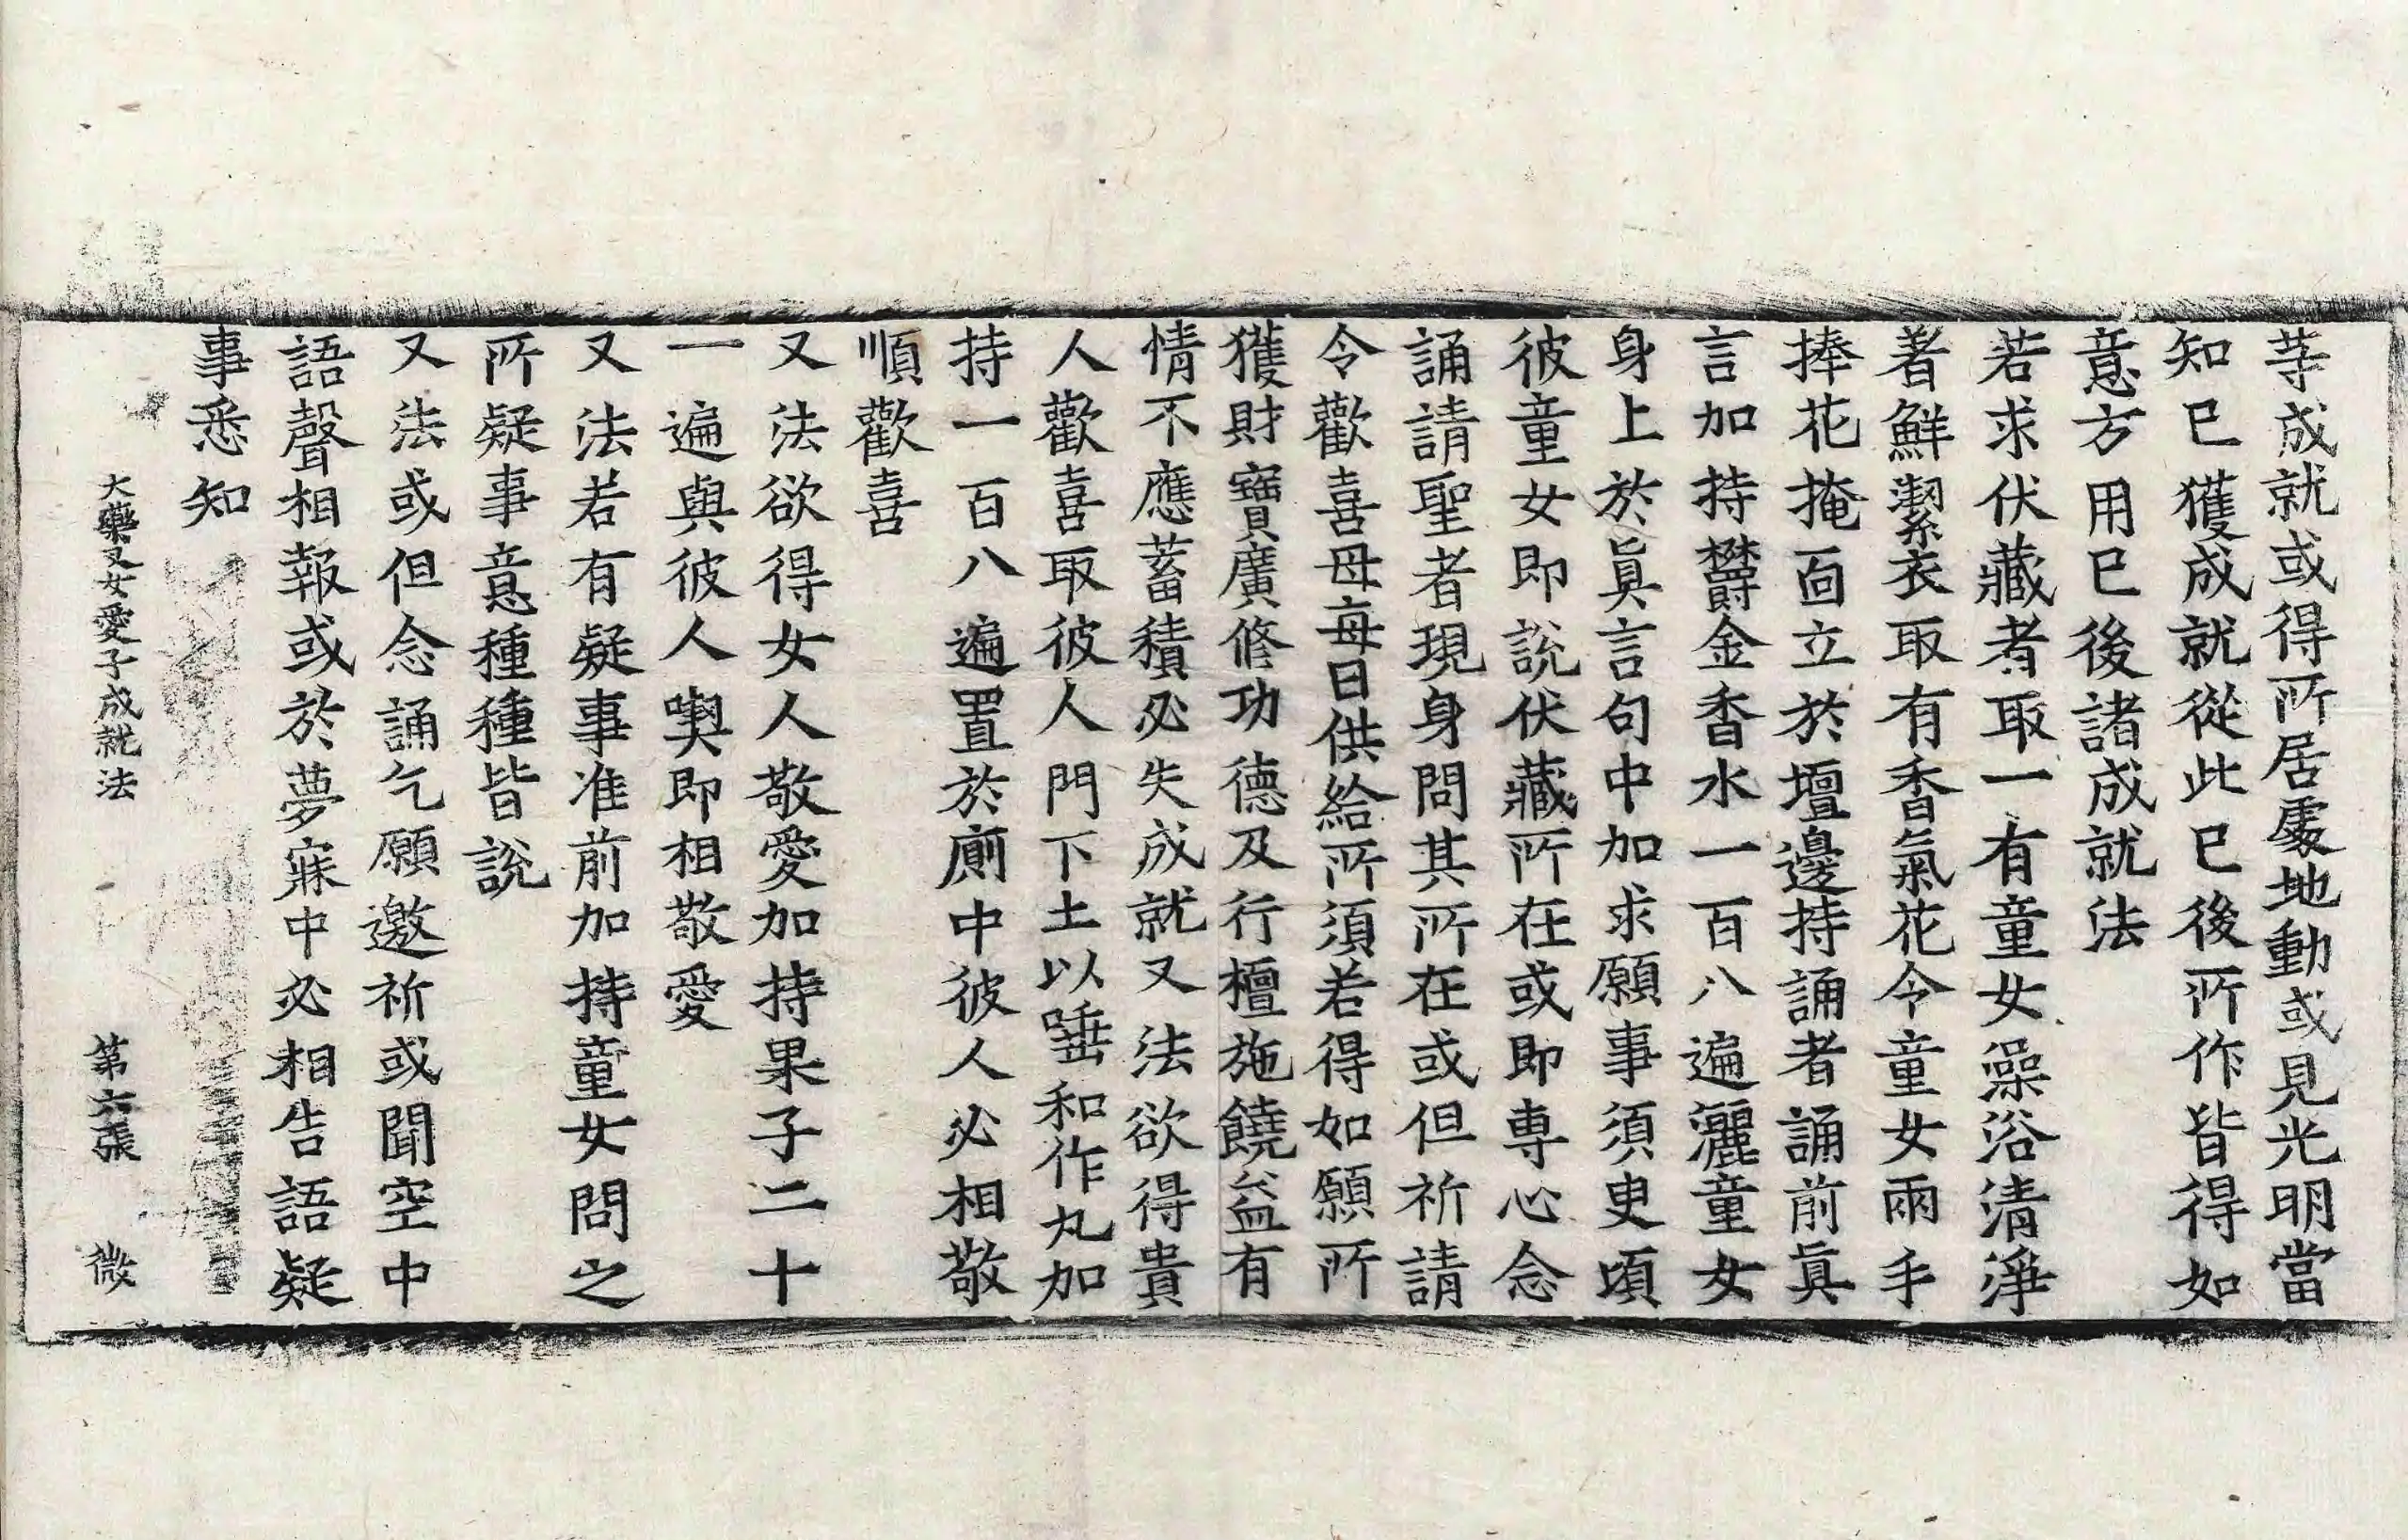 䓁成就或得所居處地動或見光明當
知已獲成就從此已後所作皆得如
意方用已後諸成就法
若求伏藏者取一有童女澡浴清淨
著鮮潔衣取有香氣花令童女兩手
捧花掩面立於壇邊持誦者誦前眞
言加持欝金香水一百八遍灑童女
身上於眞言句中加求願事須臾頃
彼童女即說伏藏所在或即專心念
誦請聖者現身問其所在或但祈請
令歡喜母每日供給所須若得如願所
獲財寶廣修功德及行檀施饒益有
情不應蓄積必失成就又法欲得貴
人歡喜取彼人門下土以唾和作丸加
持一百八遍置於廁中彼人必相敬
順歡喜
又法欲得女人敬愛加持果子二十
一遍與彼人喫即相敬愛
又法若有疑事准前加持童女問之
所疑事意種種皆說
又法或但念誦乞願邀祈或聞空中
語聲相報或於夢寐中必相告語疑
事悉知
大藥叉女愛子成就法 第六張 微